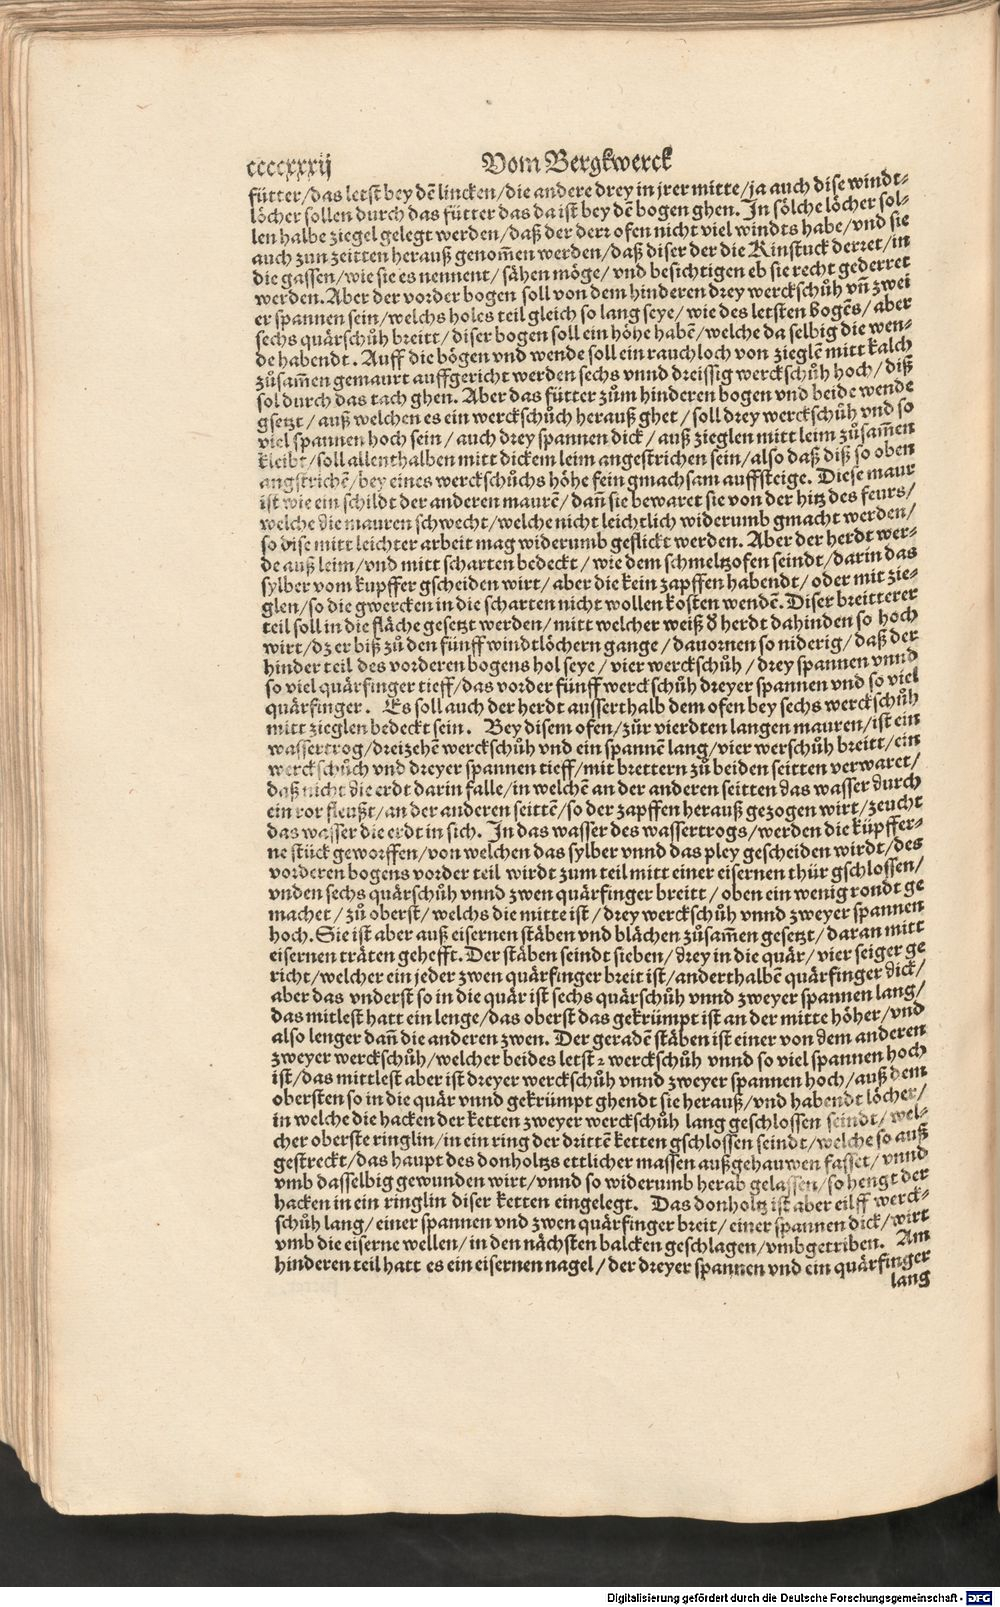 ccccxxxij Vom Bergkwerck
fütter/das letst bey dẽ lincken/die andere drey in jrer mitte/ja auch dise windt-
löcher sollen durch das fütter das da ist bey dẽ bogen ghen. In sölche löcher sol-
len halbe ziegel gelegt werden/daß der derr ofen nicht viel windts habe/vnd sie
auch zun zeitten herauß genom̃en werden/daß diser der die Kinstuck derret/in
die gassen/wie sie es nennent/sähen möge/vnd besichtigen eb sie recht gederret
werden. Aber der vorder bogen soll von dem hinderen drey werckschůh vñ zwei
er spannen sein/welchs holes teil gleich so lang seye/wie des letsten bogẽs/aber
sechs quärschůh breitt/diser bogen soll ein höhe habẽ/welche da selbig die wen-
de habendt. Auff die bögen vnd wende soll ein rauchloch von zieglẽ mitt kalch
zůsam̃en gemaurt auffgericht werden sechs vnnd dreissig werckschůh hoch/diß
sol durch das tach ghen. Aber das fütter zům hinderen bogen vnd beide wende
gsetzt/auß welchen es ein werckschůch herauß ghet/soll drey werckschůh vnd so
viel spannen hoch sein/auch drey spannen dick/auß zieglen mitt leim zůsam̃en
kleibt/soll allenthalben mitt dickem leim angestrichen sein/also daß diß so oben
angstrichẽ/bey eines werckschůchs höhe fein gmachsam auffsteige. Diese maur
ist wie ein schildt der anderen maurẽ/dañ sie bewaret sie von der hitz des feurs/
welche die mauren schwecht/welche nicht leichtlich widerumb gmacht werden/
so dise mitt leichter arbeit mag widerumb geflickt werden. Aber der herdt wer-
de auß leim/vnd mitt scharten bedeckt/wie dem schmeltzofen seindt/darin das
sylber vom kupffer gscheiden wirt/aber die kein zapffen habendt/oder mit zie-
glen/so die gwercken in die scharten nicht wollen kosten wendẽ. Diser breitterer
teil soll in die fläche gesetzt werden/mitt welcher weiß ð herdt dahinden so hoch
wirt/dz er biß zů den fünff windtlöchern gange/dauornen so niderig/daß der
hinder teil des vorderen bogens hol seye/vier werckschůh/drey spannen vnnd
so viel quärfinger tieff/das vorder fünff werckschůh dreyer spannen vnd so viel
quärfinger. Es soll auch der herdt ausserthalb dem ofen bey sechs werckschůh
mitt zieglen bedeckt sein. Bey disem ofen/zůr vierdten langen mauren/ist ein
wassertrog/dreizehẽ werckschůh vnd ein spannẽ lang/vier werschůh breitt/ein
werckschůch vnd dreyer spannen tieff/mit brettern zů beiden seitten verwaret/
daß nicht die erdt darin falle/in welchẽ an der anderen seitten das wasser durch
ein ror fleußt/an der anderen seittẽ/so der zapffen herauß gezogen wirt/zeucht
das wasser die erdt in sich. In das wasser des wassertrogs/werden die küpffer-
ne stück geworffen/von welchen das sylber vnnd das pley gescheiden wirdt/des
vorderen bogens vorder teil wirdt zum teil mitt einer eisernen thür gschlossen/
vnden sechs quärschůh vnnd zwen quärfinger breitt/oben ein wenig rondt ge
machet/zů oberst/welchs die mitte ist/drey werckschůh vnnd zweyer spannen
hoch. Sie ist aber auß eisernen stäben vnd blächen zůsam̃en gesetzt/daran mitt
eisernen träten gehefft. Der stäben seindt sieben/drey in die quär/vier seiger ge
richt/welcher ein jeder zwen quärfinger breit ist/anderthalbẽ quärfinger dick/
aber das vnderst so in die quär ist sechs quärschůh vnnd zweyer spannen lang/
das mitlest hatt ein lenge/das oberst das gekrümpt ist an der mitte höher/vnd
also lenger dañ die anderen zwen. Der geradẽ stäben ist einer von dem anderen
zweyer werckschůh/welcher beides letst 2 werckschůh vnnd so viel spannen hoch
ist/das mittlest aber ist dreyer werckschůh vnnd zweyer spannen hoch/auß dem
obersten so in die quär vnnd gekrümpt ghendt sie herauß/vnd habendt löcher/
in welche die hacken der ketten zweyer werckschůh lang geschlossen seindt/wel-
cher oberste ringlin/in ein ring der drittẽ ketten gschlossen seindt/welche so auß
gestreckt/das haupt des donholtzs ettlicher massen außgehauwen fasset/vnnd
vmb dasselbig gewunden wirt/vnnd so widerumb herab gelassen/so hengt der
hacken in ein ringlin diser ketten eingelegt. Das donholtz ist aber eilff werck-
schůh lang/einer spannen vnd zwen quärfinger breit/einer spannen dick/wirt
vmb die eiserne wellen/in den nächsten balcken geschlagen/vmbgetriben. Am
hinderen teil hatt es ein eisernen nagel/der dreyer spannen vnd ein quärfinger
lang
Digitalisierung gefördert durch die Deutsche Forschungsgemeinschaft - DFG